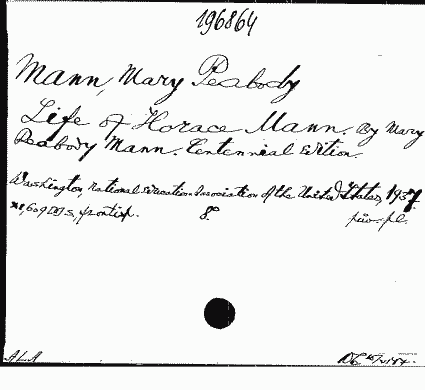 196864
Mann, Mary Peabody
Life of Horace Mann. By Mary
Peabody Mann. Centennial Edition.
Washington, National Education Association of the United States, 1937.
609 pp., frontisp. 8°.
ALA